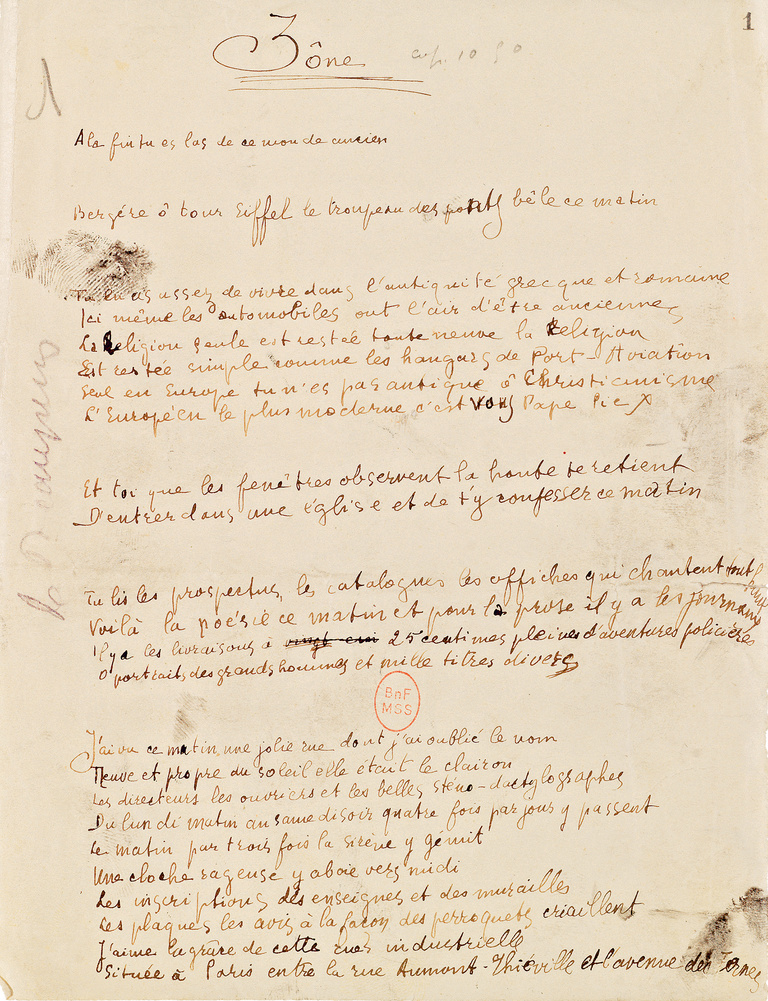 1
Zône
A la fin tu es las de ce monde ancien
Bergère ô tour Eiffel le troupeau des ponts bêle ce matin
Tu en as assez de vivre dans l'antiquité grecque et romaine
Ici même les automobiles ont l'air d'être anciennes
La Religion seule est restée toute neuve la Religion
Est restée simple comme les hangars de Port-Aviation
Seul en Europe tu n'es pas antique ô Christianisme
L'Européen le plus moderne c'est vous Pape Pie X
Et toi que les fenêtres observent la honte te retient
D'entrer dans une Église et de t'y confesser ce matin
Tu lis les prospectus, les catalogues les affiches qui chantent tout haut
Voilà la poésie ce matin et pour la prose il y a les journaux
Il y a les livraisons à 25 centimes pleines d'aventures policières
portraits des grands hommes et mille titres divers
BnF
MSS
J'ai vu ce matin une jolie rue dont j'ai oublié le nom
Neuve et propre du soleil elle était le clairon
Les directeurs les ouvriers et les belles sténo-dactylographes
Du lundi matin au samedi soir quatre fois par jour y passent
Le matin par trois fois la sirène y gémit
Une cloche rageuse y aboie vers midi
Les inscriptions des enseignes et des murailles
Les plaques les avis à la façon des perroquets criaillent
J'aime la grâce de cette rue industrielle
Située à Paris entre la rue Aumont-Thiéville et l'avenue des Ternes